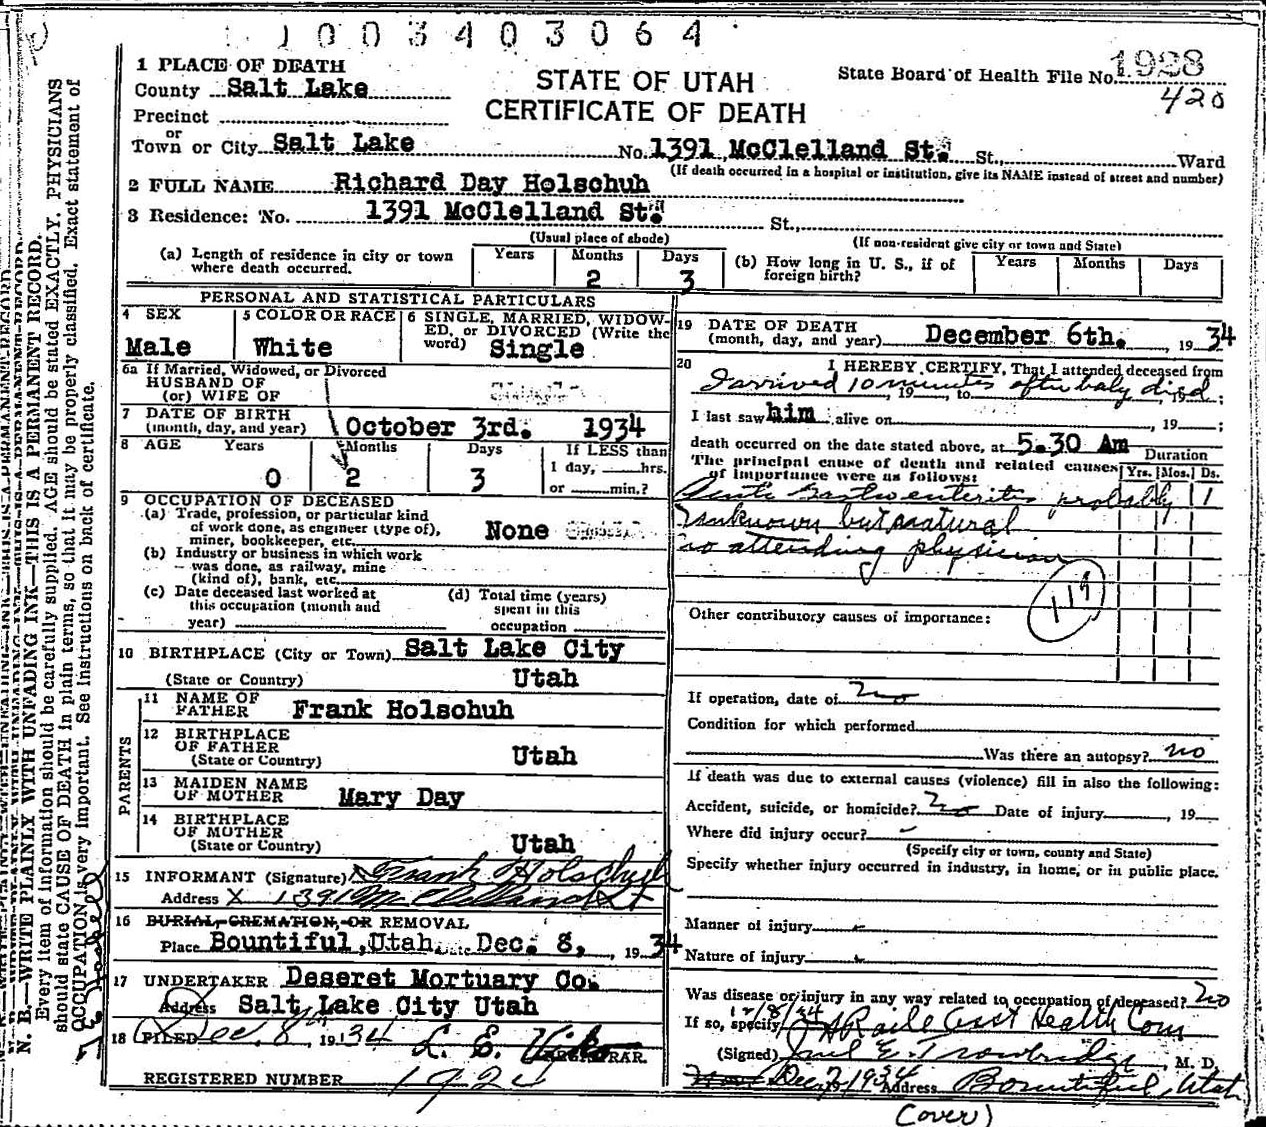 1003403064
1 PLACE OF DEATH
County Salt Lake
STATE OF UTAH
CERTIFICATE OF DEATH
State Board of Health File No. 1928
420
Precinct
or
Town or City Salt Lake No. 1391 McClelland St. St., Ward
(If death occurred in a hospital or institution, give its NAME instead of street and number)
2 FULL NAME Richard Day Holschuh
3 Residence: No. 1391 McClelland St. St.,
(Usual place of abode) (If non-resident give city or town and State)
(a) Length of residence in city or town where death occurred. Years Months 2 Days 3
(b) How long in U. S., if of foreign birth? Years Months Days
PERSONAL AND STATISTICAL PARTICULARS
4 SEX Male
5 COLOR OR RACE White
6 SINGLE, MARRIED, WIDOWED, or DIVORCED (Write the word) Single
6a If Married, Widowed, or Divorced
HUSBAND OF
(or) WIFE OF
7 DATE OF BIRTH
(month, day, and year) October 3rd. 1934
8 AGE Years 0 Months 2 Days 3 If LESS than
1 day, hrs.
or min.?
9 OCCUPATION OF DECEASED
(a) Trade, profession, or particular kind
of work done, as engineer (type of),
miner, bookkeeper, etc. None
(b) Industry or business in which work
was done, as railway, mine
(kind of), bank, etc.
(c) Date deceased last worked at
this occupation (month and
year)
(d) Total time (years)
spent in this
occupation
10 BIRTHPLACE (City or Town) Salt Lake City
(State or Country) Utah
PARENTS
11 NAME OF
FATHER Frank Holschuh
12 BIRTHPLACE
OF FATHER
(State or Country) Utah
13 MAIDEN NAME
OF MOTHER Mary Day
14 BIRTHPLACE
OF MOTHER
(State or Country) Utah
15 INFORMANT (Signature) X Frank Holschuh
Address X 1391 McClelland St
16 BURIAL, CREMATION, OR REMOVAL
Place Bountiful, Utah. Date Dec. 8, 1934
17 UNDERTAKER Deseret Mortuary Co.
Address Salt Lake City Utah
18 FILED Dec. 8th, 1934 L. E. REGISTRAR.
REGISTERED NUMBER 1924
19 DATE OF DEATH
(month, day, and year) December 6th., 1934
20 I HEREBY CERTIFY, That I attended deceased from
I arrived 10 minutes after baby died
, 19 , to , 19 ;
I last saw him alive on , 19 ;
death occurred on the date stated above, at 5.30 Am
The principal cause of death and related causes
of importance were as follows:
Duration
Yrs. Mos. Ds.
Acute Gastroenteritis probably 1
Unknown but natural
no attending physician
119
Other contributory causes of importance:
If operation, date of no
Condition for which performed
Was there an autopsy? no
If death was due to external causes (violence) fill in also the following:
Accident, suicide, or homicide? no Date of injury , 19
Where did injury occur? -
(Specify city or town, county and State)
Specify whether injury occurred in industry, in home, or in public place.
Manner of injury -
Nature of injury -
Was disease or injury in any way related to occupation of deceased? no
If so, specify 12/8/34 Asst Health Com
(Signed) E. Trowbridge, M. D.
Dec 7 1934 Address Bountiful, Utah
(over)
N. B.—WRITE PLAINLY WITH UNFADING INK—THIS IS A PERMANENT RECORD.
Every item of information should be carefully supplied. AGE should be stated EXACTLY. PHYSICIANS
should state CAUSE OF DEATH in plain terms, so that it may be properly classified. Exact statement of
OCCUPATION is very important. See instructions on back of certificate.